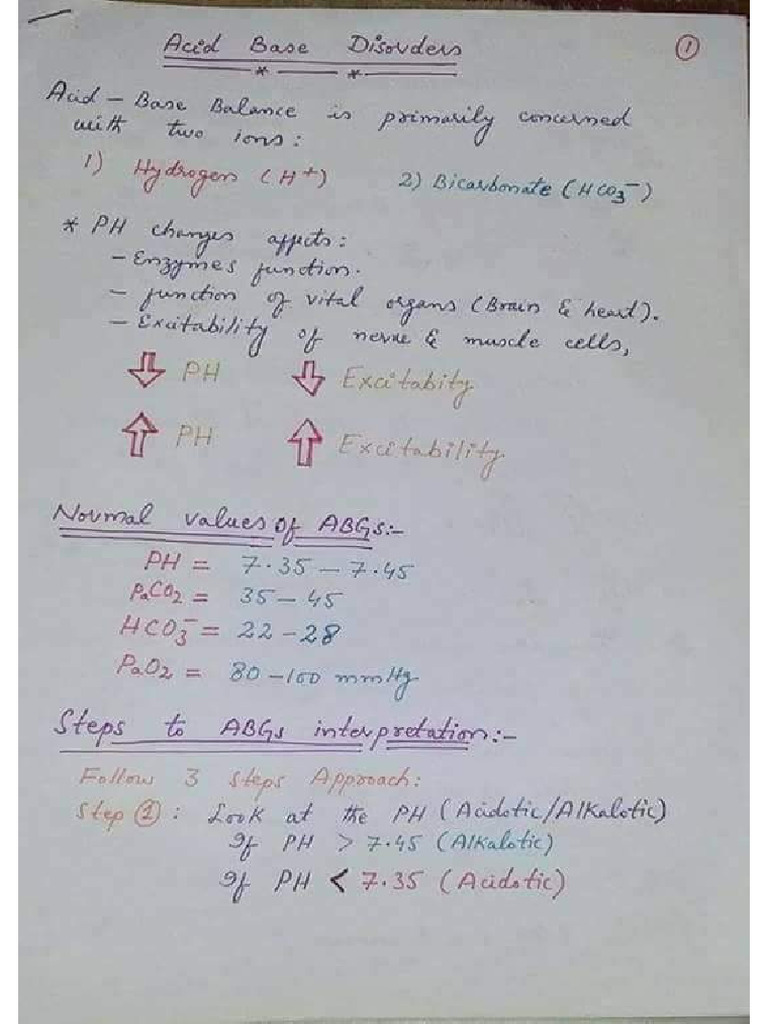 Acid Base Disorders
1
Acid - Base Balance is primarily concerned
with two ions:
1) Hydrogen (H+) 2) Bicarbonate (HCO3-)
* PH changes affects:
- Enzymes function.
- function of vital organs (Brain & heart).
- Excitability of nerve & muscle cells,
⇓ PH ⇓ Excitabity
⇑ PH ⇑ Excitability
Normal values of ABGs:-
PH = 7.35 - 7.45
PaCO2 = 35 - 45
HCO3- = 22 - 28
PaO2 = 80 - 100 mmHg
Steps to ABGs interpretation:-
Follow 3 steps Approach:
Step 1: Look at the PH (Acidotic/Alkalotic)
If PH > 7.45 (Alkalotic)
If PH < 7.35 (Acidotic)